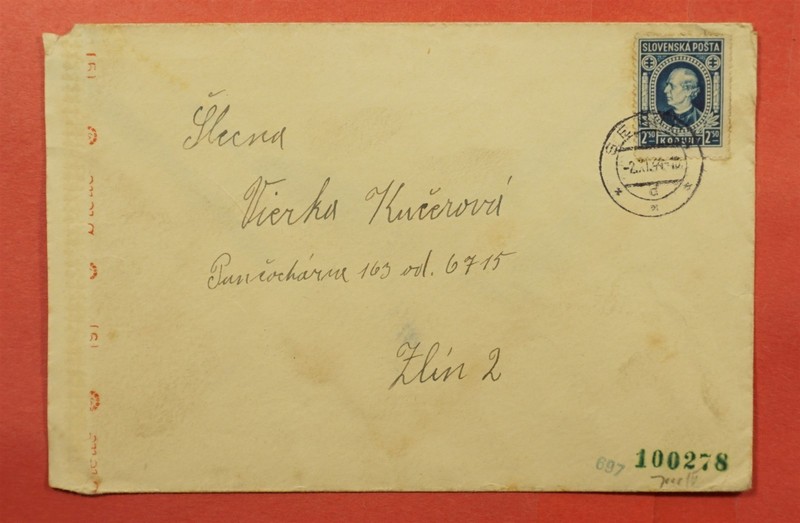 SLOVENSKÁ POŠTA
2·50 KORUNY 2·50
Šlecna
Vierka Kučerová
Pančochárne 163 od. 6715
Zlín 2
697 100278